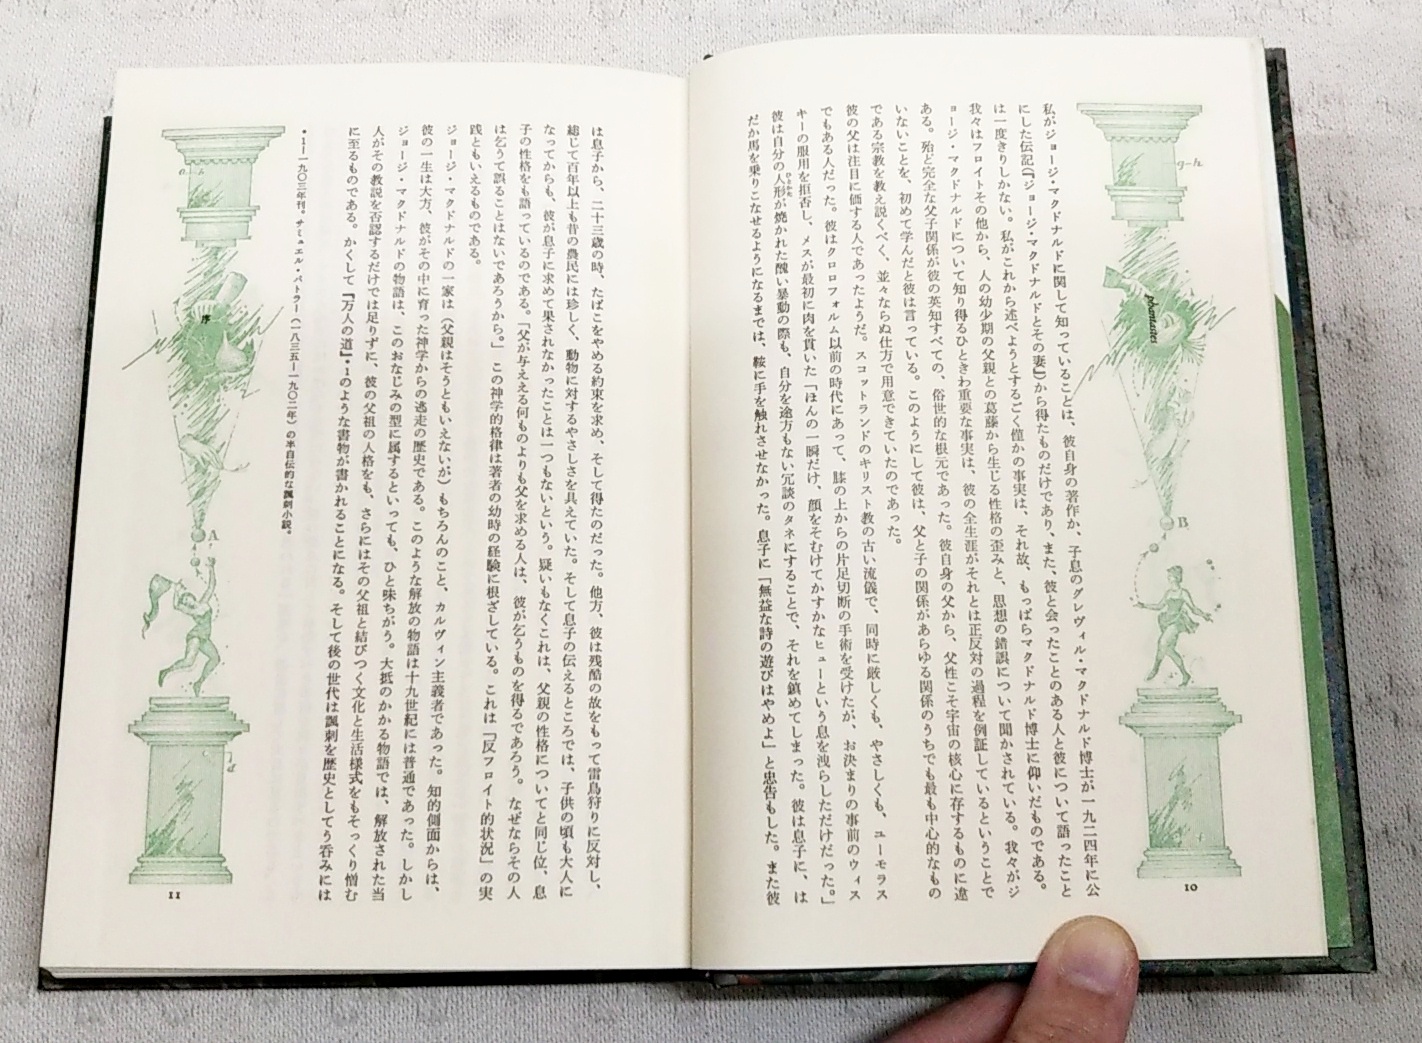 g-h
phantastes
B
10
私がジョージ・マクドナルドに関して知っていることは、彼自身の著作か、子息のグレヴィル・マクドナルド博士が一九二四年に公
にした伝記(『ジョージ・マクドナルドとその妻』)から得たものだけであり、また、彼と会ったことのある人と彼について語ったこと
は一度きりしかない。私がこれから述べようとするごく僅かの事実は、それ故、もっぱらマクドナルド博士に仰いだものである。
我々はフロイトその他から、人の幼少期の父親との葛藤から生じる性格の歪みと、思想の錯誤について聞かされている。我々がジ
ョージ・マクドナルドについて知り得るひときわ重要な事実は、彼の全生涯がそれとは正反対の過程を例証しているということで
ある。殆ど完全な父子関係が彼の英知すべての、俗世的な根元であった。彼自身の父から、父性こそ宇宙の核心に存するものに違
いないことを、初めて学んだと彼は言っている。このようにして彼は、父と子の関係があらゆる関係のうちでも最も中心的なもの
である宗教を教え説くべく、並々ならぬ仕方で用意できていたのであった。
彼の父は注目に価する人であったようだ。スコットランドのキリスト教の古い流儀で、同時に厳しくも、やさしくも、ユーモラス
でもある人だった。彼はクロロフォルム以前の時代にあって、膝の上からの片足切断の手術を受けたが、お決まりの事前のウィス
キーの服用を拒否し、メスが最初に肉を貫いた「ほんの一瞬だけ、顔をそむけてかすかなヒューという息を洩らしただけだった。」
彼は自分の人形が焼かれた醜い暴動の際も、自分を途方もない冗談のタネにすることで、それを鎮めてしまった。彼は息子に、は
だか馬を乗りこなせるようになるまでは、鞍に手を触れさせなかった。息子に「無益な詩の遊びはやめよ」と忠告もした。また彼
は息子から、二十三歳の時、たばこをやめる約束を求め、そして得たのだった。他方、彼は残酷の故をもって雷鳥狩りに反対し、
総じて百年以上も昔の農民には珍しく、動物に対するやさしさを具えていた。そして息子の伝えるところでは、子供の頃も大人に
なってからも、彼が息子に求めて果されなかったことは一つもないという。疑いもなくこれは、父親の性格についてと同じ位、息
子の性格をも語っているのである。「父が与える何ものよりも父を求める人は、彼が乞うものを得るであろう。なぜならその人
は乞うて誤ることはないであろうから。」この神学的格律は著者の幼時の経験に根ざしている。これは「反フロイト的状況」の実
践ともいえるものである。
ジョージ・マクドナルドの一家は(父親はそうともいえないが)もちろんのこと、カルヴィン主義者であった。知的側面からは、
彼の一生は大方、彼がその中に育った神学からの逃走の歴史である。このような解放の物語は十九世紀には普通であった。しかし
ジョージ・マクドナルドの物語は、このおなじみの型に属するといっても、ひと味ちがう。大抵のかかる物語では、解放された当
人がその教説を否認するだけでは足りずに、彼の父祖の人格をも、さらにはその父祖と結びつく文化と生活様式をもそっくり憎む
に至るものである。かくして『万人の道』・1のような書物が書かれることになる。そして後の世代は諷刺を歴史としてう呑みには
・1―一九〇三年刊。サミュエル・バトラー(一八三五―一九〇二年)の半自伝的な諷刺小説。
序
A
d
11